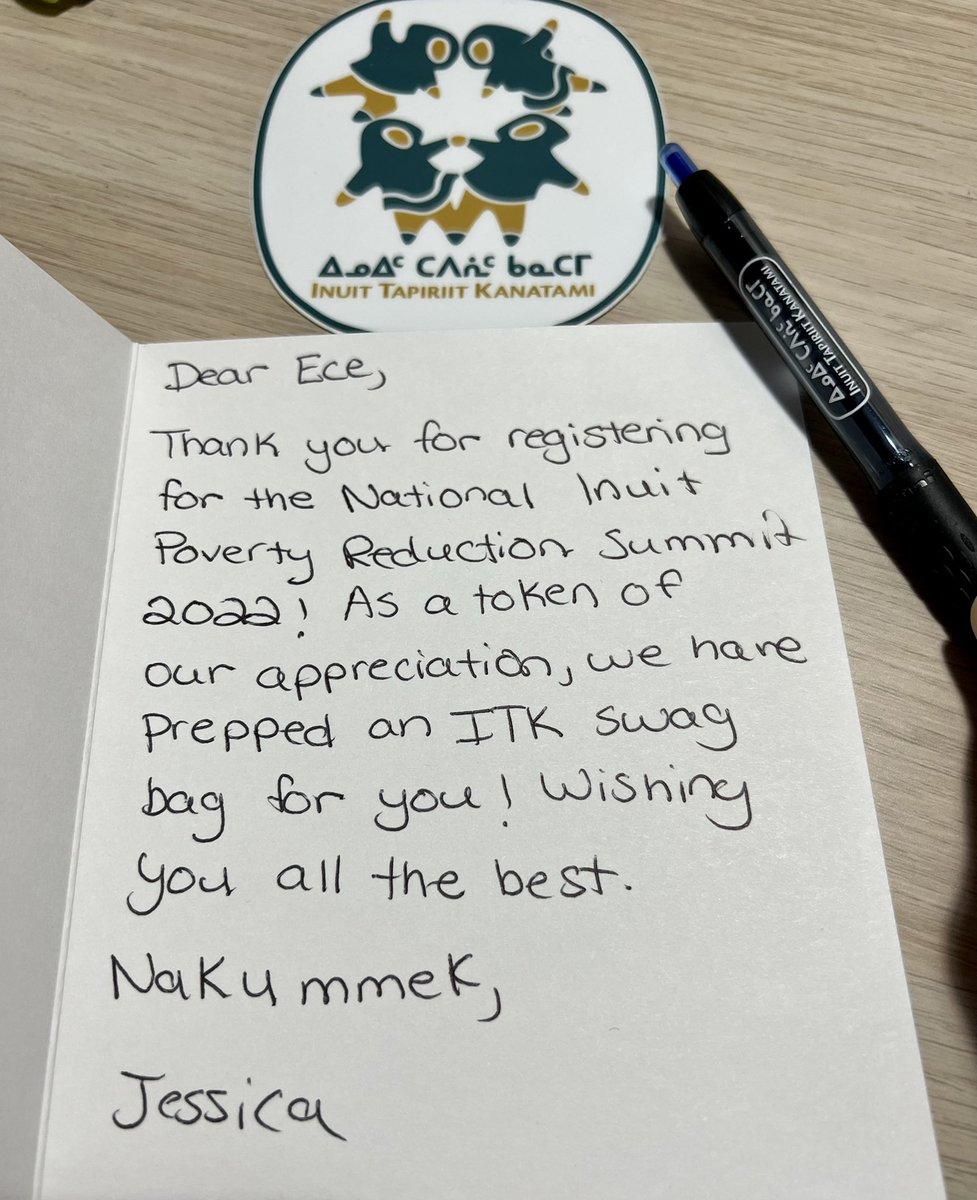 ᐃᓄᐃᑦ ᑕᐱᕇᑦ ᑲᓇᑕᒥ
INUIT TAPIRIIT KANATAMI
ᐃᓄᐃᑦ ᑕᐱᕇᑦ ᑲᓇᑕᒥ
INUIT TAPIRIIT KANATAMI
Dear Ece,
Thank you for registering
for the National Inuit
Poverty Reduction Summit
2022! As a token of
our appreciation, we have
prepped an ITK swag
bag for you! Wishing
you all the best.
Nakummek,
Jessica